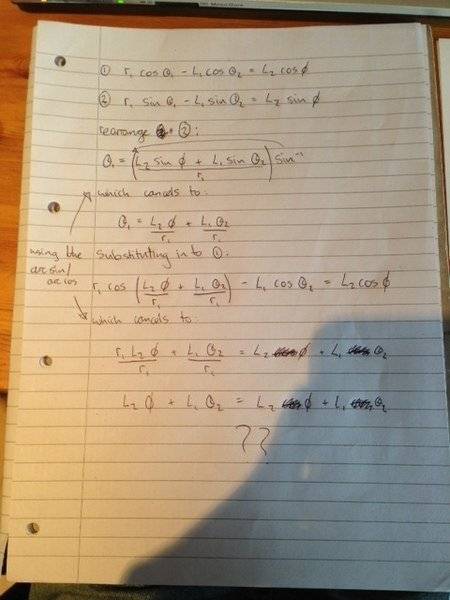 ① r₁ cos θ₁ - L₁ cos θ₂ = L₂ cos ϕ
② r₁ sin θ₁ - L₁ sin θ₂ = L₂ sin ϕ
rearrange ②:
θ₁ = (L₂ sin ϕ + L₁ sin θ₂ / r₁) sin⁻¹
which cancels to:
θ₁ = L₂ ϕ / r₁ + L₁ θ₂ / r₁
using the
arcsin/
arccos
Substituting in to ①:
r₁ cos (L₂ ϕ / r₁ + L₁ θ₂ / r₁) - L₁ cos θ₂ = L₂ cos ϕ
which cancels to:
r₁ L₂ ϕ / r₁ + L₁ θ₂ / r₁ = L₂ ϕ + L₁ θ₂
L₂ ϕ + L₁ θ₂ = L₂ ϕ + L₁ θ₂
??